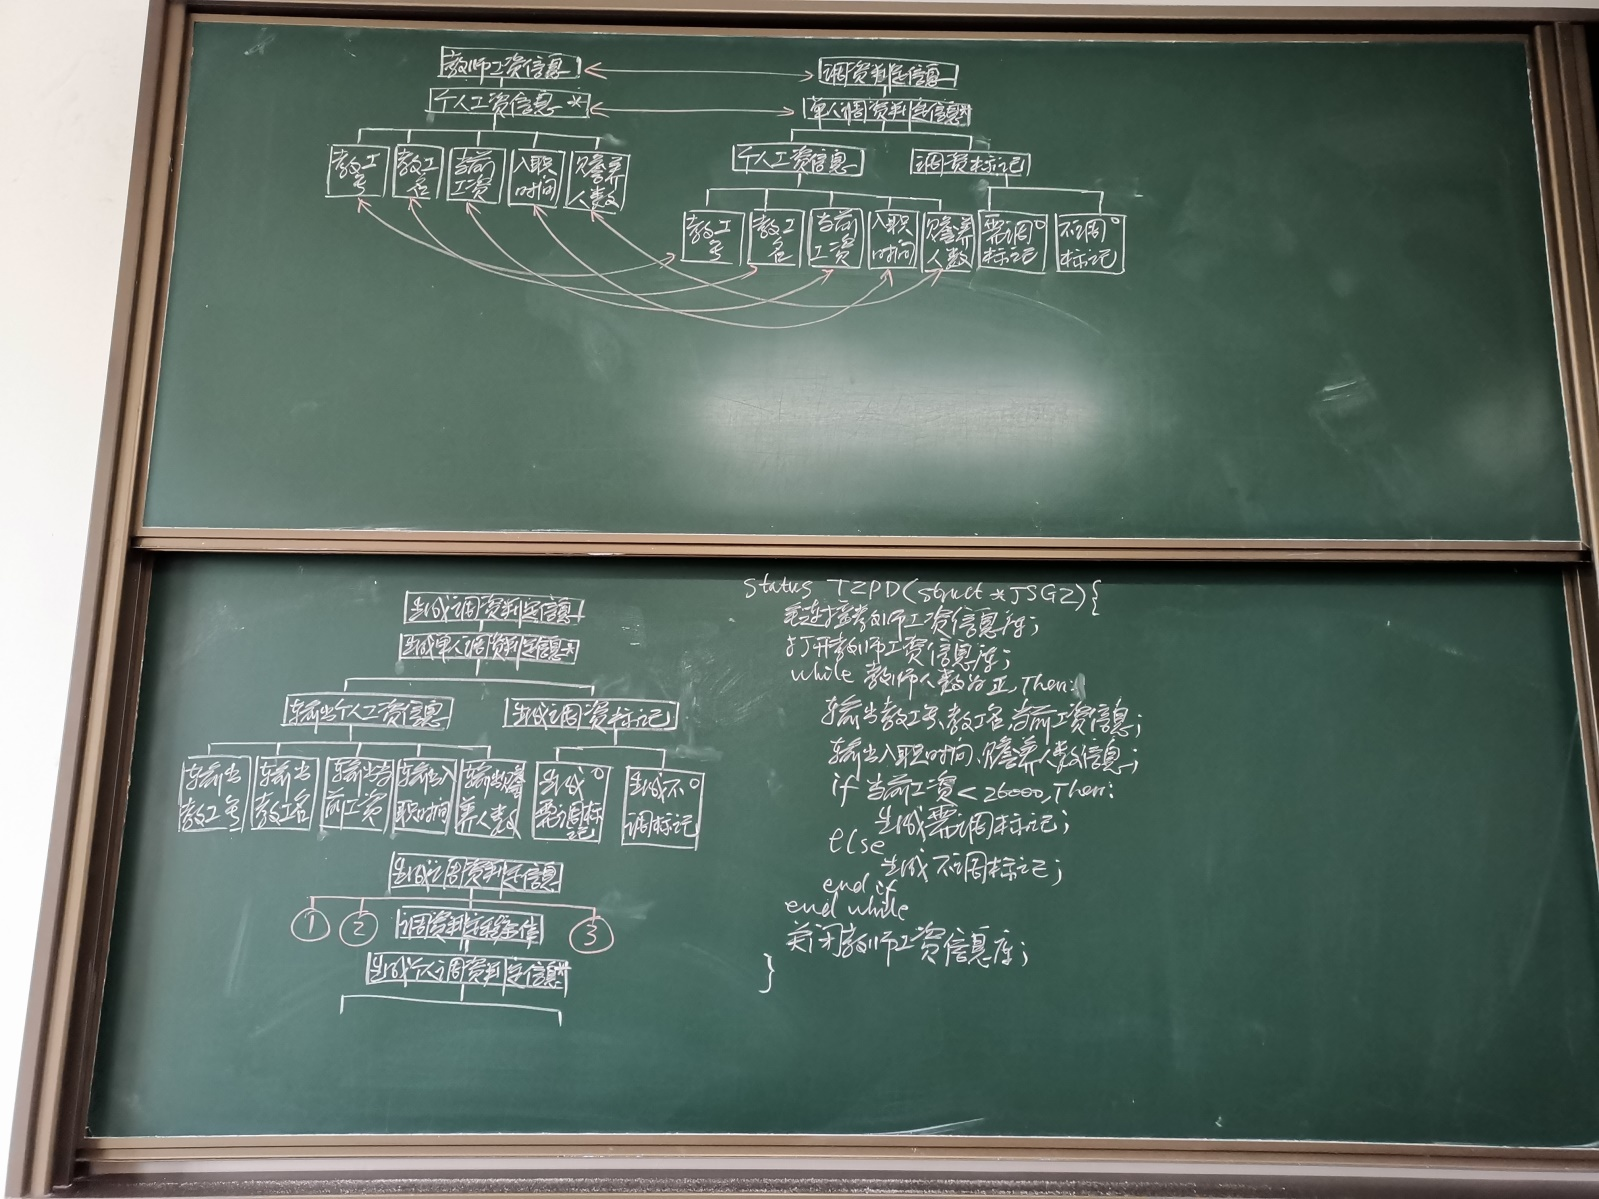 教师工资信息
调资判定信息
个人工资信息 *
单人调资判定信息*
个人工资信息
调资标记
教工号
教工名
当前工资
入职时间
赡养人数
教工号
教工名
当前工资
入职时间
赡养人数
需调°标记
不调°标记
生成调资判定信息
生成单人调资判定信息*
输出个人工资信息
生成调资标记
输出教工号
输出教工名
输出当前工资
输出入职时间
输出赡养人数
生成°需调标记
生成不°调标记
生成调资判定信息
① ②
③
生成个人调资判定信息*
status TZPD(struct *JSGZ){
连接教师工资信息库;
打开教师工资信息库;
while 教师人数为正,Then:
输出教工号、教工名、当前工资信息;
输出入职时间、赡养人数信息;
if 当前工资 < 26000,Then:
生成需调标记;
else
生成不调标记;
end if
end while
关闭教师工资信息库;
}